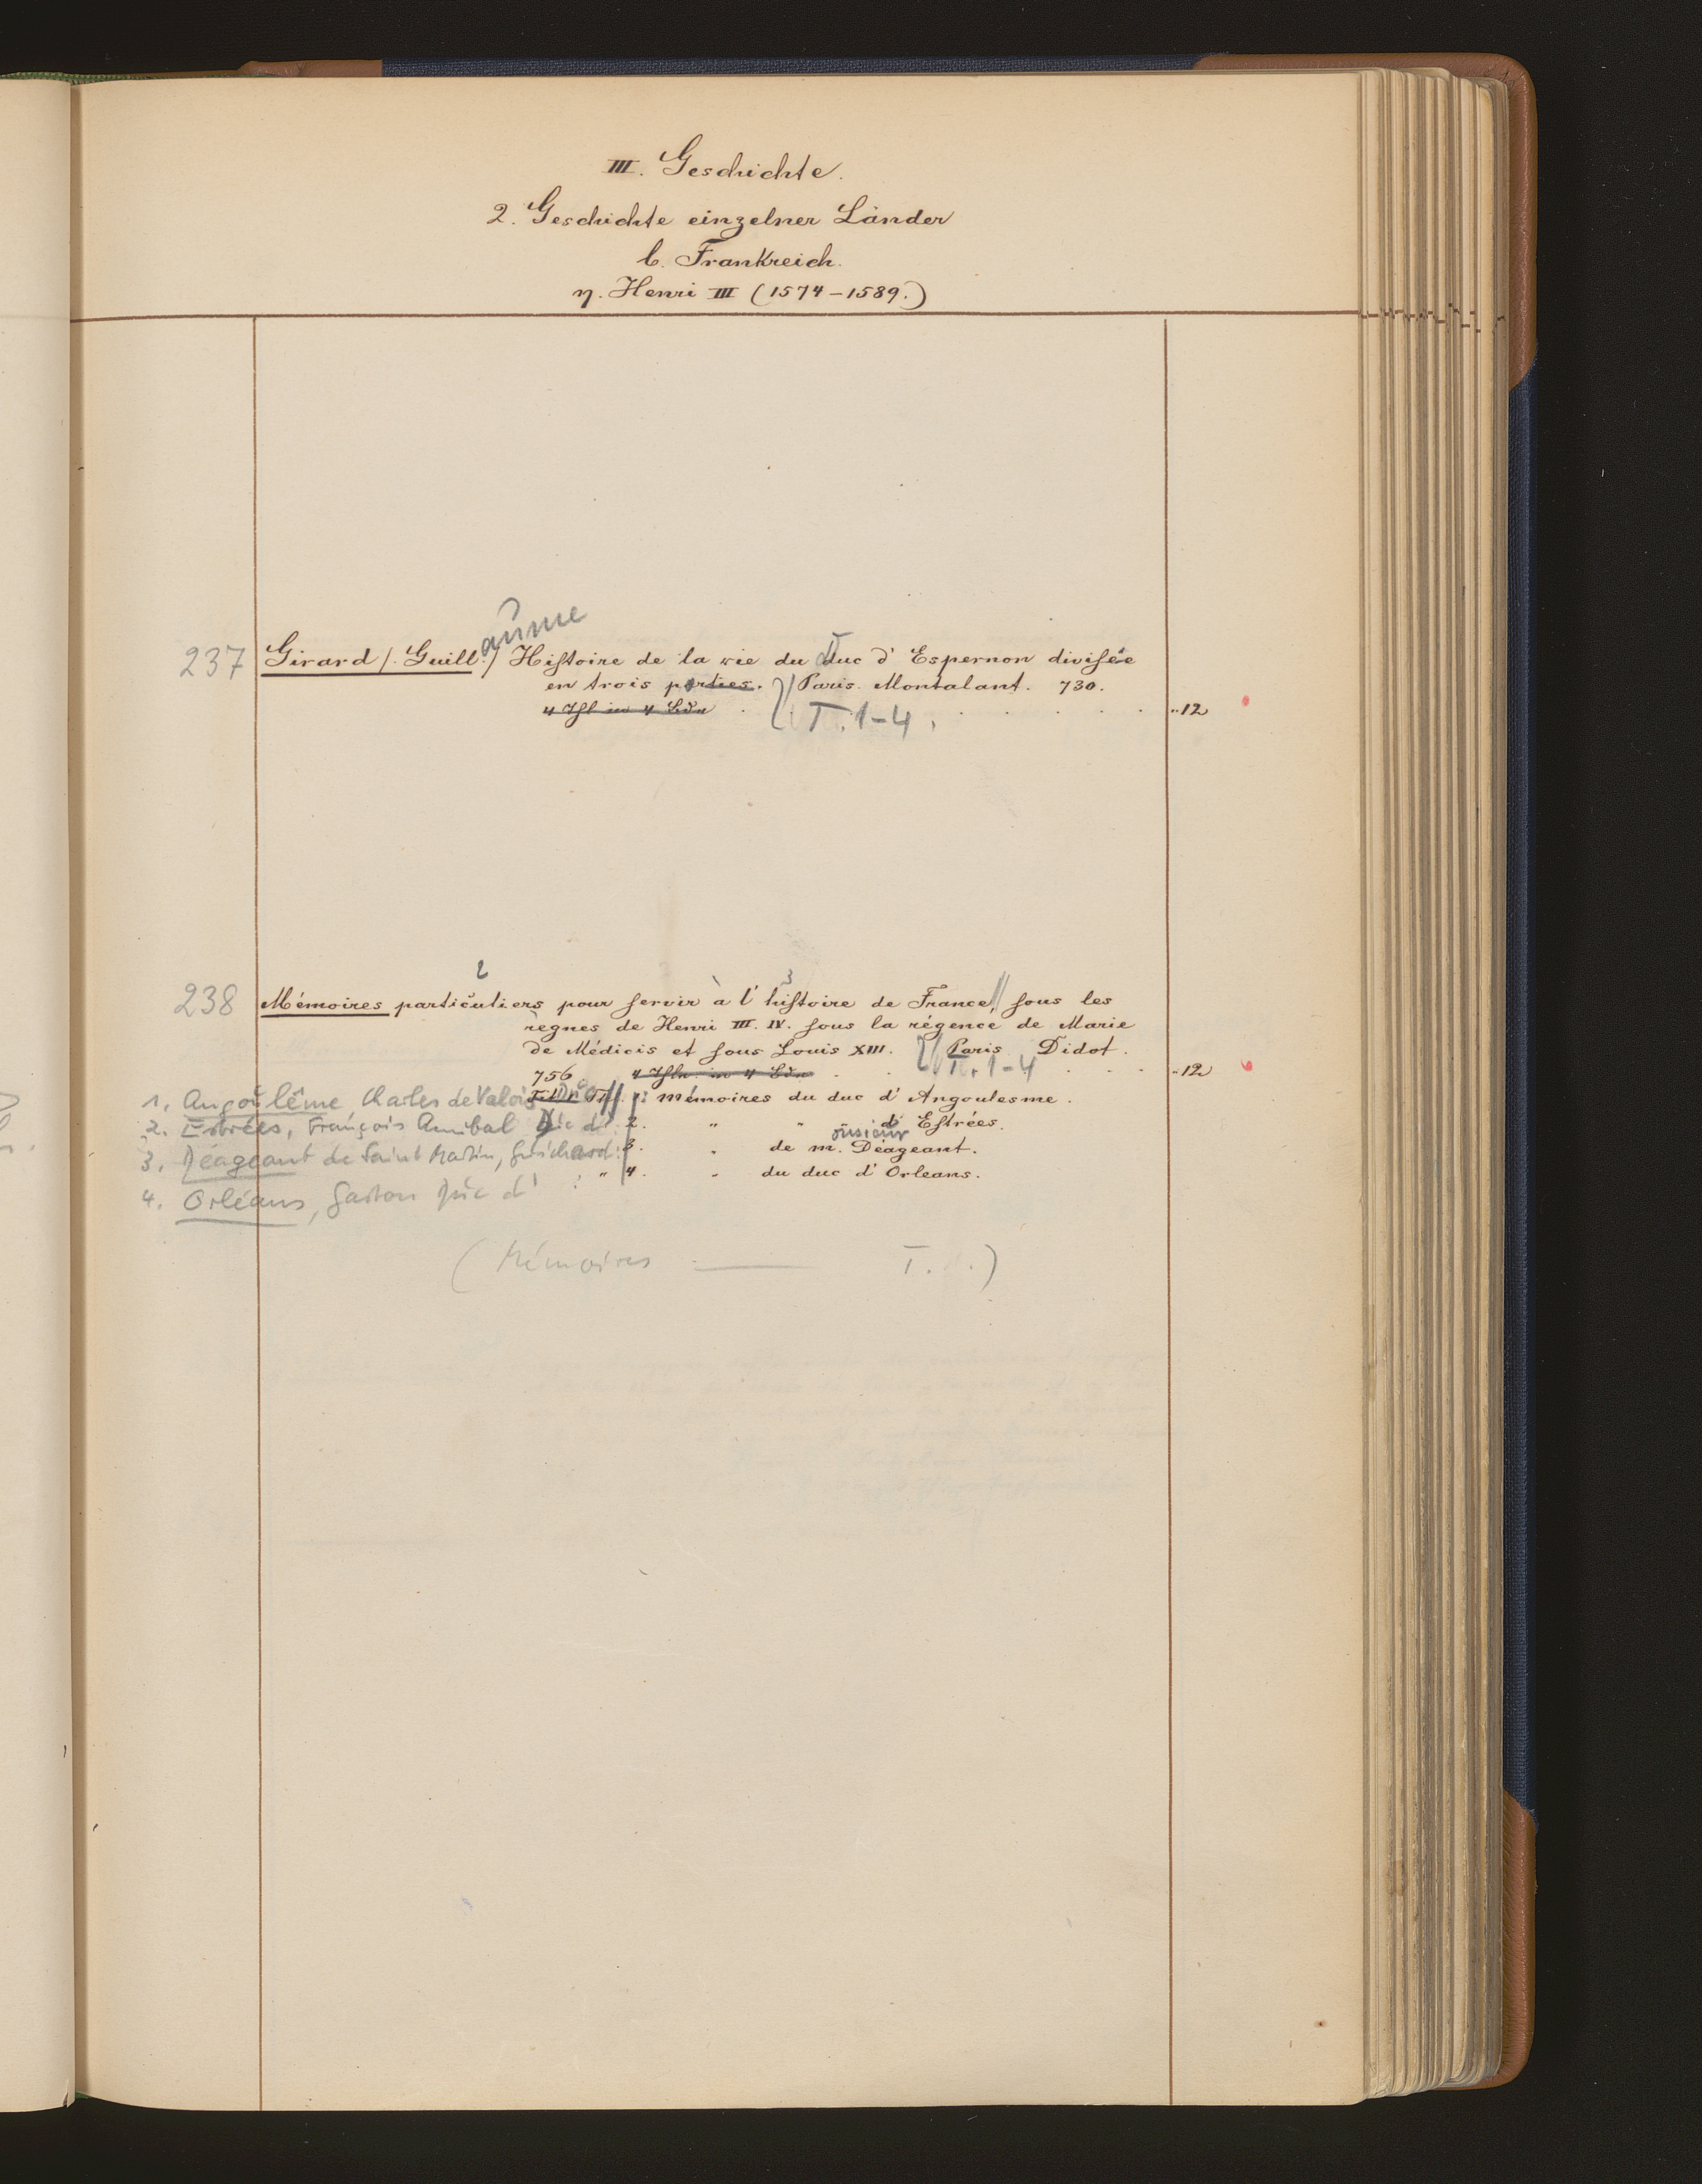 III. Geschichte.
2. Geschichte einzelner Länder
b. Frankreich.
η. Henri III (1574-1589.)
aume
237 Girard (Guill.) Histoire de la vie du duc d'Espernon divisée
en trois parties. Paris. Montalant. 730.
4 Thl in 4 Bdn T. 1-4. ..12
2 3
238 Mémoires particuliers pour servir à l'histoire de France, sous les
règnes de Henri III. IV. sous la régence de Marie
de Médicis et sous Louis XIII. Paris Didot.
756. 4 Thle. in 4 Bdn T. 1-4 ..12
1. Angoulême, Charles de Valois Duc d' 1. Mémoires du duc d'Angoulesme.
2. Estrées, François Annibal Duc d' 2. " " d'Estrées.
onsieur
3. Déageant de Saint Martin, Guichard: 3. " de M. Déageant.
" 4. " du duc d'Orleans.
4. Orléans, Gaston Duc d'
(Mémoires — T. )